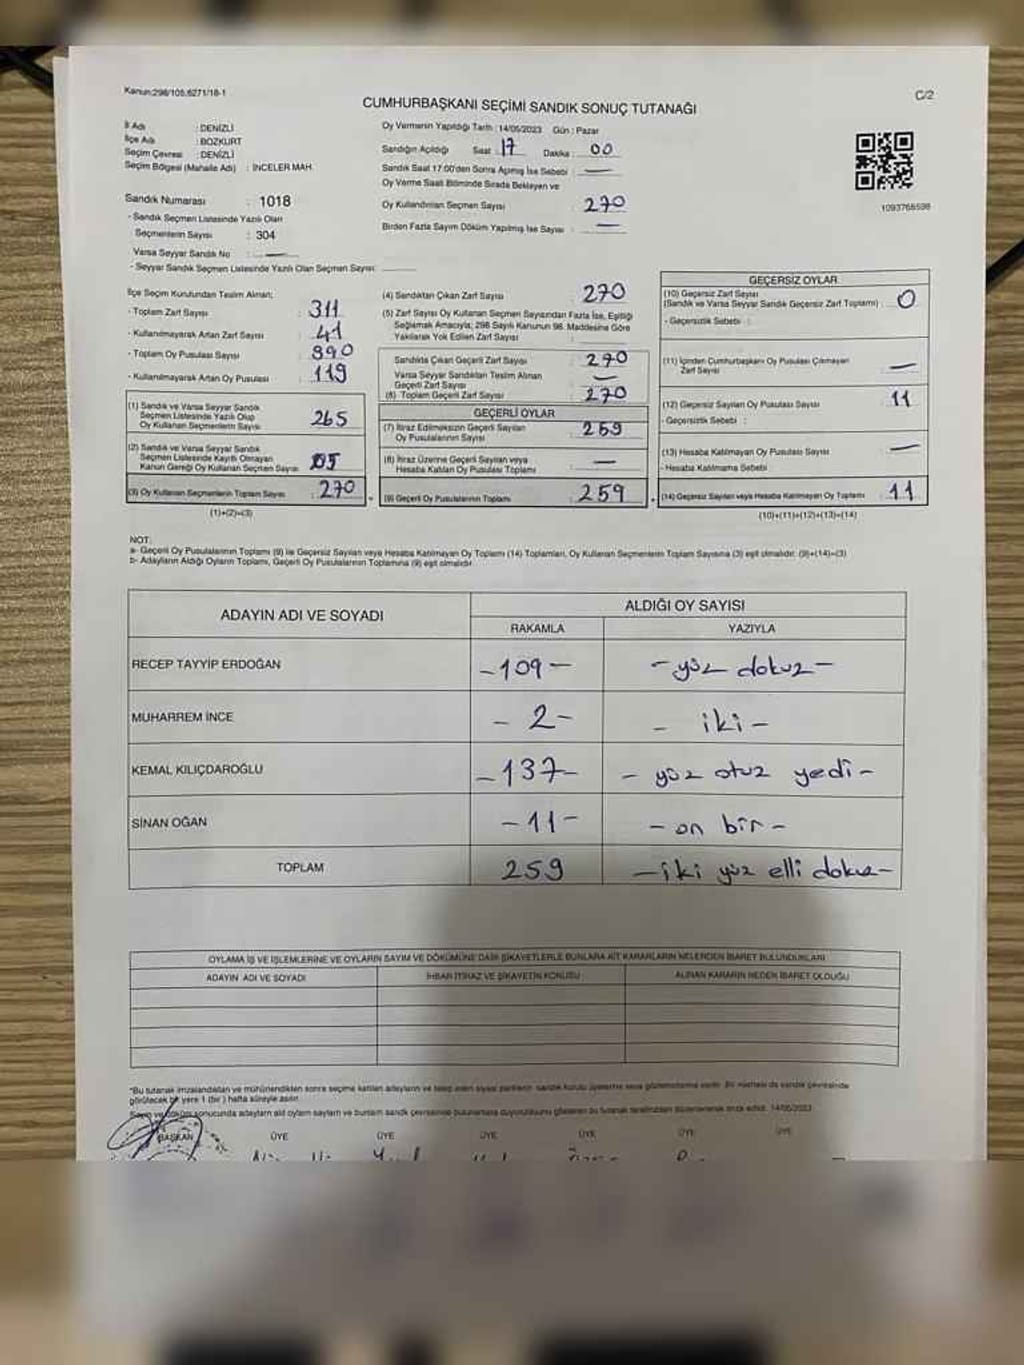 Kanun:298/105,6271/18-1
C/2
CUMHURBAŞKANI SEÇİMİ SANDIK SONUÇ TUTANAĞI
İl Adı : DENİZLİ
İlçe Adı : BOZKURT
Seçim Çevresi : DENİZLİ
Seçim Bölgesi (Mahalle Adı) : İNCELER MAH.
Sandık Numarası : 1018
- Sandık Seçmen Listesinde Yazılı Olan
Seçmenlerin Sayısı : 304
Varsa Seyyar Sandık No : —
- Seyyar Sandık Seçmen Listesinde Yazılı Olan Seçmen Sayısı:
Oy Vermenin Yapıldığı Tarih : 14/05/2023 Gün : Pazar
Sandığın Açıldığı Saat : 17 Dakika : 00
Sandık Saat 17:00'den Sonra Açılmış İse Sebebi : —
Oy Verme Saati Bitiminde Sırada Bekleyen ve
Oy Kullandırılan Seçmen Sayısı : 270
Birden Fazla Sayım Döküm Yapılmış İse Sayısı : —
1093768598
İlçe Seçim Kurulundan Teslim Alınan;
- Toplam Zarf Sayısı : 311
- Kullanılmayarak Artan Zarf Sayısı : 41
- Toplam Oy Pusulası Sayısı : 390
- Kullanılmayarak Artan Oy Pusulası : 119
(1) Sandık ve Varsa Seyyar Sandık
Seçmen Listesinde Yazılı Olup
Oy Kullanan Seçmenlerin Sayısı : 265
(2) Sandık ve Varsa Seyyar Sandık
Seçmen Listesinde Kayıtlı Olmayan
Kanun Gereği Oy Kullanan Seçmen Sayısı : 05
(3) Oy Kullanan Seçmenlerin Toplam Sayısı : 270
(1)+(2)=(3)
(4) Sandıktan Çıkan Zarf Sayısı : 270
(5) Zarf Sayısı Oy Kullanan Seçmen Sayısından Fazla İse, Eşitliği
Sağlamak Amacıyla; 298 Sayılı Kanunun 98. Maddesine Göre
Yakılarak Yok Edilen Zarf Sayısı :
Sandıkta Çıkan Geçerli Zarf Sayısı : 270
Varsa Seyyar Sandıktan Teslim Alınan
Geçerli Zarf Sayısı : —
(6) Toplam Geçerli Zarf Sayısı : 270
GEÇERLİ OYLAR
(7) İtiraz Edilmeksizin Geçerli Sayılan
Oy Pusulalarının Sayısı : 259
(8) İtiraz Üzerine Geçerli Sayılan veya
Hesaba Katılan Oy Pusulası Toplamı : —
(9) Geçerli Oy Pusulalarının Toplamı : 259
GEÇERSİZ OYLAR
(10) Geçersiz Zarf Sayısı
(Sandık ve Varsa Seyyar Sandık Geçersiz Zarf Toplamı) : 0
- Geçersizlik Sebebi :
(11) İçinden Cumhurbaşkanı Oy Pusulası Çıkmayan
Zarf Sayısı : —
(12) Geçersiz Sayılan Oy Pusulası Sayısı : 11
- Geçersizlik Sebebi :
(13) Hesaba Katılmayan Oy Pusulası Sayısı : —
- Hesaba Katılmama Sebebi
(14) Geçersiz Sayılan veya Hesaba Katılmayan Oy Toplamı : 11
(10)+(11)+(12)+(13)=(14)
NOT:
a- Geçerli Oy Pusulalarının Toplamı (9) ile Geçersiz Sayılan veya Hesaba Katılmayan Oy Toplamı (14) Toplamları, Oy Kullanan Seçmenlerin Toplam Sayısına (3) eşit olmalıdır. (9)+(14)=(3)
b- Adayların Aldığı Oyların Toplamı, Geçerli Oy Pusulalarının Toplamına (9) eşit olmalıdır.
ADAYIN ADI VE SOYADI
ALDIĞI OY SAYISI
RAKAMLA YAZIYLA
RECEP TAYYİP ERDOĞAN -109- -yüz dokuz-
MUHARREM İNCE -2- -iki-
KEMAL KILIÇDAROĞLU -137- -yüz otuz yedi-
SİNAN OĞAN -11- -on bir-
TOPLAM 259 -iki yüz elli dokuz-
OYLAMA İŞ VE İŞLEMLERİNE VE OYLARIN SAYIM VE DÖKÜMÜNE DAİR ŞİKAYETLERLE BUNLARA AİT KARARLARIN NELERDEN İBARET BULUNDUKLARI
ADAYIN ADI VE SOYADI İHBAR İTİRAZ VE ŞİKAYETİN KONUSU ALINAN KARARIN NEDEN İBARET OLDUĞU
"Bu tutanak imzalandıktan ve mühürlendikten sonra seçime katılan adayların ve talep eden siyasi partilerin sandık kurulu üyelerine veya gözlemcilerine verilir. Bir nüshası da sandık çevresinde
görülecek bir yere 1 (bir) hafta süreyle asılır.
BAŞKAN ÜYE ÜYE ÜYE ÜYE ÜYE ÜYE